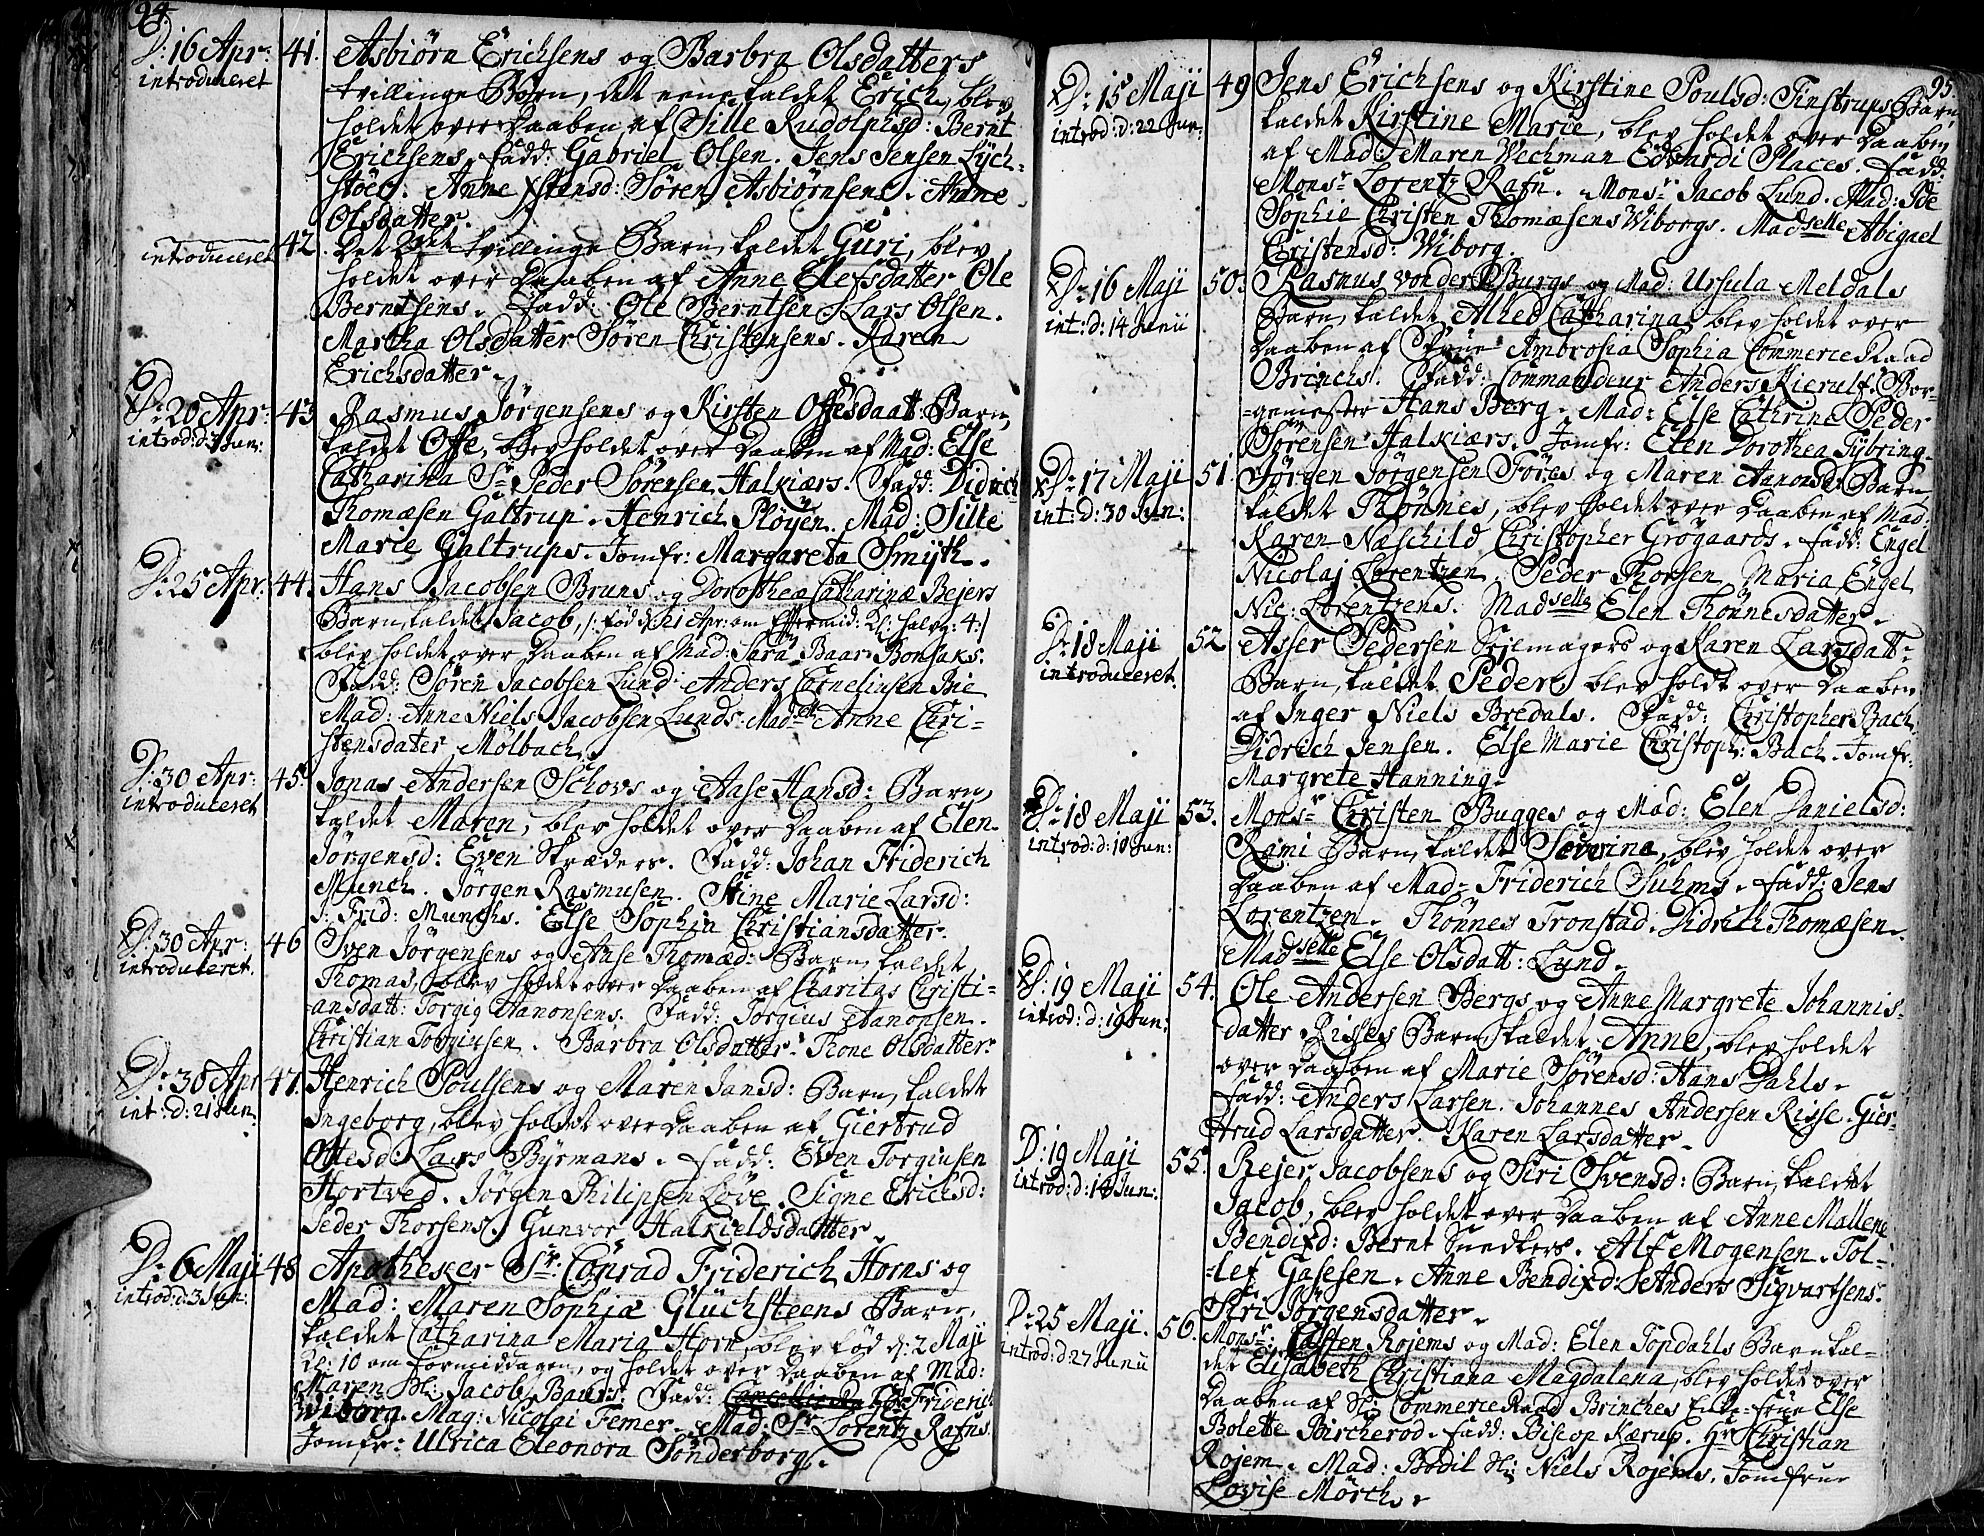 94.
D: 16 Apr: 41. Asbiørn Erichsens og Barbra Olsdatters
introduceret tvillinge Børn, det eene kaldet Erich, blev
holdet over Daaben af Sille Rudolphsd: Bernt
Erichsens. Fadd: Gabriel Olsen. Jens Jensen Lÿch-
støed. Anne Søren Asbiørnsens. Anne
Olsdatter.
introduceret 42. Det 2det tvillinge Barn, kaldet Guri, blev
holdet over Daaben af Anne Elefsdatter Ole
Berntsens. Fadd: Ole Berntsen. Lars Olsen.
Martha Olsdatter Søren Christensens. Karen
Erichsdatter.
D: 20 Apr: 43. Rasmus Jørgensens og Kirsten Offesdaat: Barn,
introd: d: 3 Jun: kaldet Offe, blev holdet over Daaben af Mad: Else
Catharina Sr Peder Sørensen Halkiærs. Fadd: Didrich
Thomæsen Galtrup. Henrich Pløyen. Mad: Sille
Marie Galtrups. Jomfr: Margareta Smÿth.
D: 25 Apr: 44. Hans Jacobsen Bruns og Dorotheæ Catharinæ Bejers
Barn, kaldet Jacob, /: fød d: 21 Apr: om Eftermid: Kl: halv: 4:/
blev holdet over Daaben af Mad: Sara Baar Bonsaks.
Fadd: Søren Jacobsen Lund. Anders Corneliusen Bie
Mad: Anne Niels Jacobsen Lunds. Madlle Anne Chri-
stensdater Mølbach.
D: 30 Apr: 45. Jonas Andersen Schovs og Aase Hansd: Barn,
introduceret kaldet Maren, blev holdet over Daaben af Elen
Jørgensd: Even Skræders. Fadd: Johan Friderich
Munch. Jørgen Rasmusen. Stine Marie Larsd:
J: Frid: Munchs. Else Sophia Christiansdatter.
D: 30 Apr: 46 Sven Jørgensens og Aase Thomæd: Barn, kaldet
introduceret. Thomas, blev holdet over Daaben af Charitas Christi-
ansdatt: Torgig Aanonsens. Fadd: Torgius Aanonsen.
Christian Torgiusen. Barbra Olsdatter. Thone Olsdatter.
D: 30 Apr 47. Henrich Poulsens og Maren Jansd: Barn, kaldet
int: d: 21 Jun: Ingeborg, blev holdet over Daaben af Giertrud
Ottesd: Lars Bÿrmans. Fadd: Even Torgiusen
Hortved. Jørgen Philipsen Løve. Signe Erichsd:
Peder Thorsens. Gunvor Halkieldsdatter.
D: 6 Maji 48 Apotheker Sr: Conrad Friderich Horns og
introd: d: 3 Jun: Mad: Maren Sophiæ Glüchsteens Barn,
kaldet Catharina Maria Horn, blev fød d: 2 Maji
Kl: 10 om formiddagen, og holdet over Daaben af Mad:
Maren Sl: Jacob Baurs. Fadd: Friderich
Wiborg. Mag: Nicolai Femer. Mad: Sr Lorentz Rafns.
Jomfr: Ulrica Eleonora Sønderborg.
95
D: 15 Maji 49 Jens Erichsens og Kirstine Poulsd: Finstrups Barn,
introd: d: 22 Jun: kaldet Kirstine Marie, blev holdet over Daaben
af Mad: Maren Wechman Edvardi Places. Fadd:
Monsr Lorentz Rafn. Monsr Jacob Lund. Mad: Ide
Sophie Christen Thomæsens Wiborgs. Madselle Abigael
Christensd: Wiborg.
D: 16 Maji 50. Rasmus von der Burgs og Mad: Ursula Meldals
int: d: 14 Junii Barn, kaldet Alhed Catharina, blev holdet over
Daaben af Frue Ambrosia Sophia Commerce Raad
Brinchs. Fadd: Commandeur Anders Kierulf. Bor-
-gemester Hans Berg. Mad: Else Cathrine Peder
Sørensen Halkiærs. Jomfr: Elen Dorothea Fÿbring.
D: 17 Maji 51. Jørgen Jørgensen Føres og Maren Aanonsd: Barn,
int: d: 30 Jun: kaldet Thønnes, blev holdet over Daaben af Mad:
Karen Næschild Christopher Grøgaards. Fadd: Engel
Nicolaj Lorentzen. Peder Thorsen. Maria Engel
Nic: Lorentzens. Madselle Elen Thønnesdatter.
D: 18 Maji 52 Asser Pedersen Sejlmagers og Karen Larsdatt:
introduceret. Barn, kaldet Peder, blev holdt over Daaben
af Inger Niels Bredals. Fadd: Christopher Bach.
Didrich Jensen. Else Marie Christoph: Bach. Jomfr:
Margrete Hanning.
D: 18 Maji 53. Monsr Christen Bugges og Mad: Elen Danielsd:
introd: d: 10 Jun: Rami Barn, kaldet Severine, blev holdet over
Daaben af Mad: Friderich Suhms. Fadd: Jens
Lorentzen. Thønnes Tronstad. Didrich Thomæsen.
Madselle Else Olsdatt: Lund.
D: 19 Maji 54. Ole Andersen Bergs og Anne Margrete Johannis-
introd: d: 19 Jun: datter Risses Barn, kaldet Anne, blev holdet
over Daaben af Marie Sørensd: Hans Dahls.
Fadd: Anders Larsen. Johannes Andersen Risse. Gier-
trud Larsdatter. Karen Larsdatter.
D: 19 Maji 55. Rejer Jacobsens og Siri Svensd: Barn, kaldet
introd: d: 18 Jun: Jacob, blev holdet over Daaben af Anne Mallene
Bendixd: Bernt Snedkers. Alf Mogensen. Tol-
-lef Gasesen. Anne Bendixd: Anders Sigvartsens.
Siri Jørgensdatter.
D: 25 Maji. 56. Monsr: Casten Rojems og Mad: Elen Topdahls Barn kal-
introd: d: 27 Junii det Elisabeth Christiana Magdalena, blev holdet over
Daaben af Sl: Commerce Raad Brinches Enke-Frue Else
Bolette Bircherod. Fadd: Biscop Kærup. Hr Christian
Rojem. Mad: Bodil Sl: Niels Rojems. Jomfrue
Lovise Mørch.